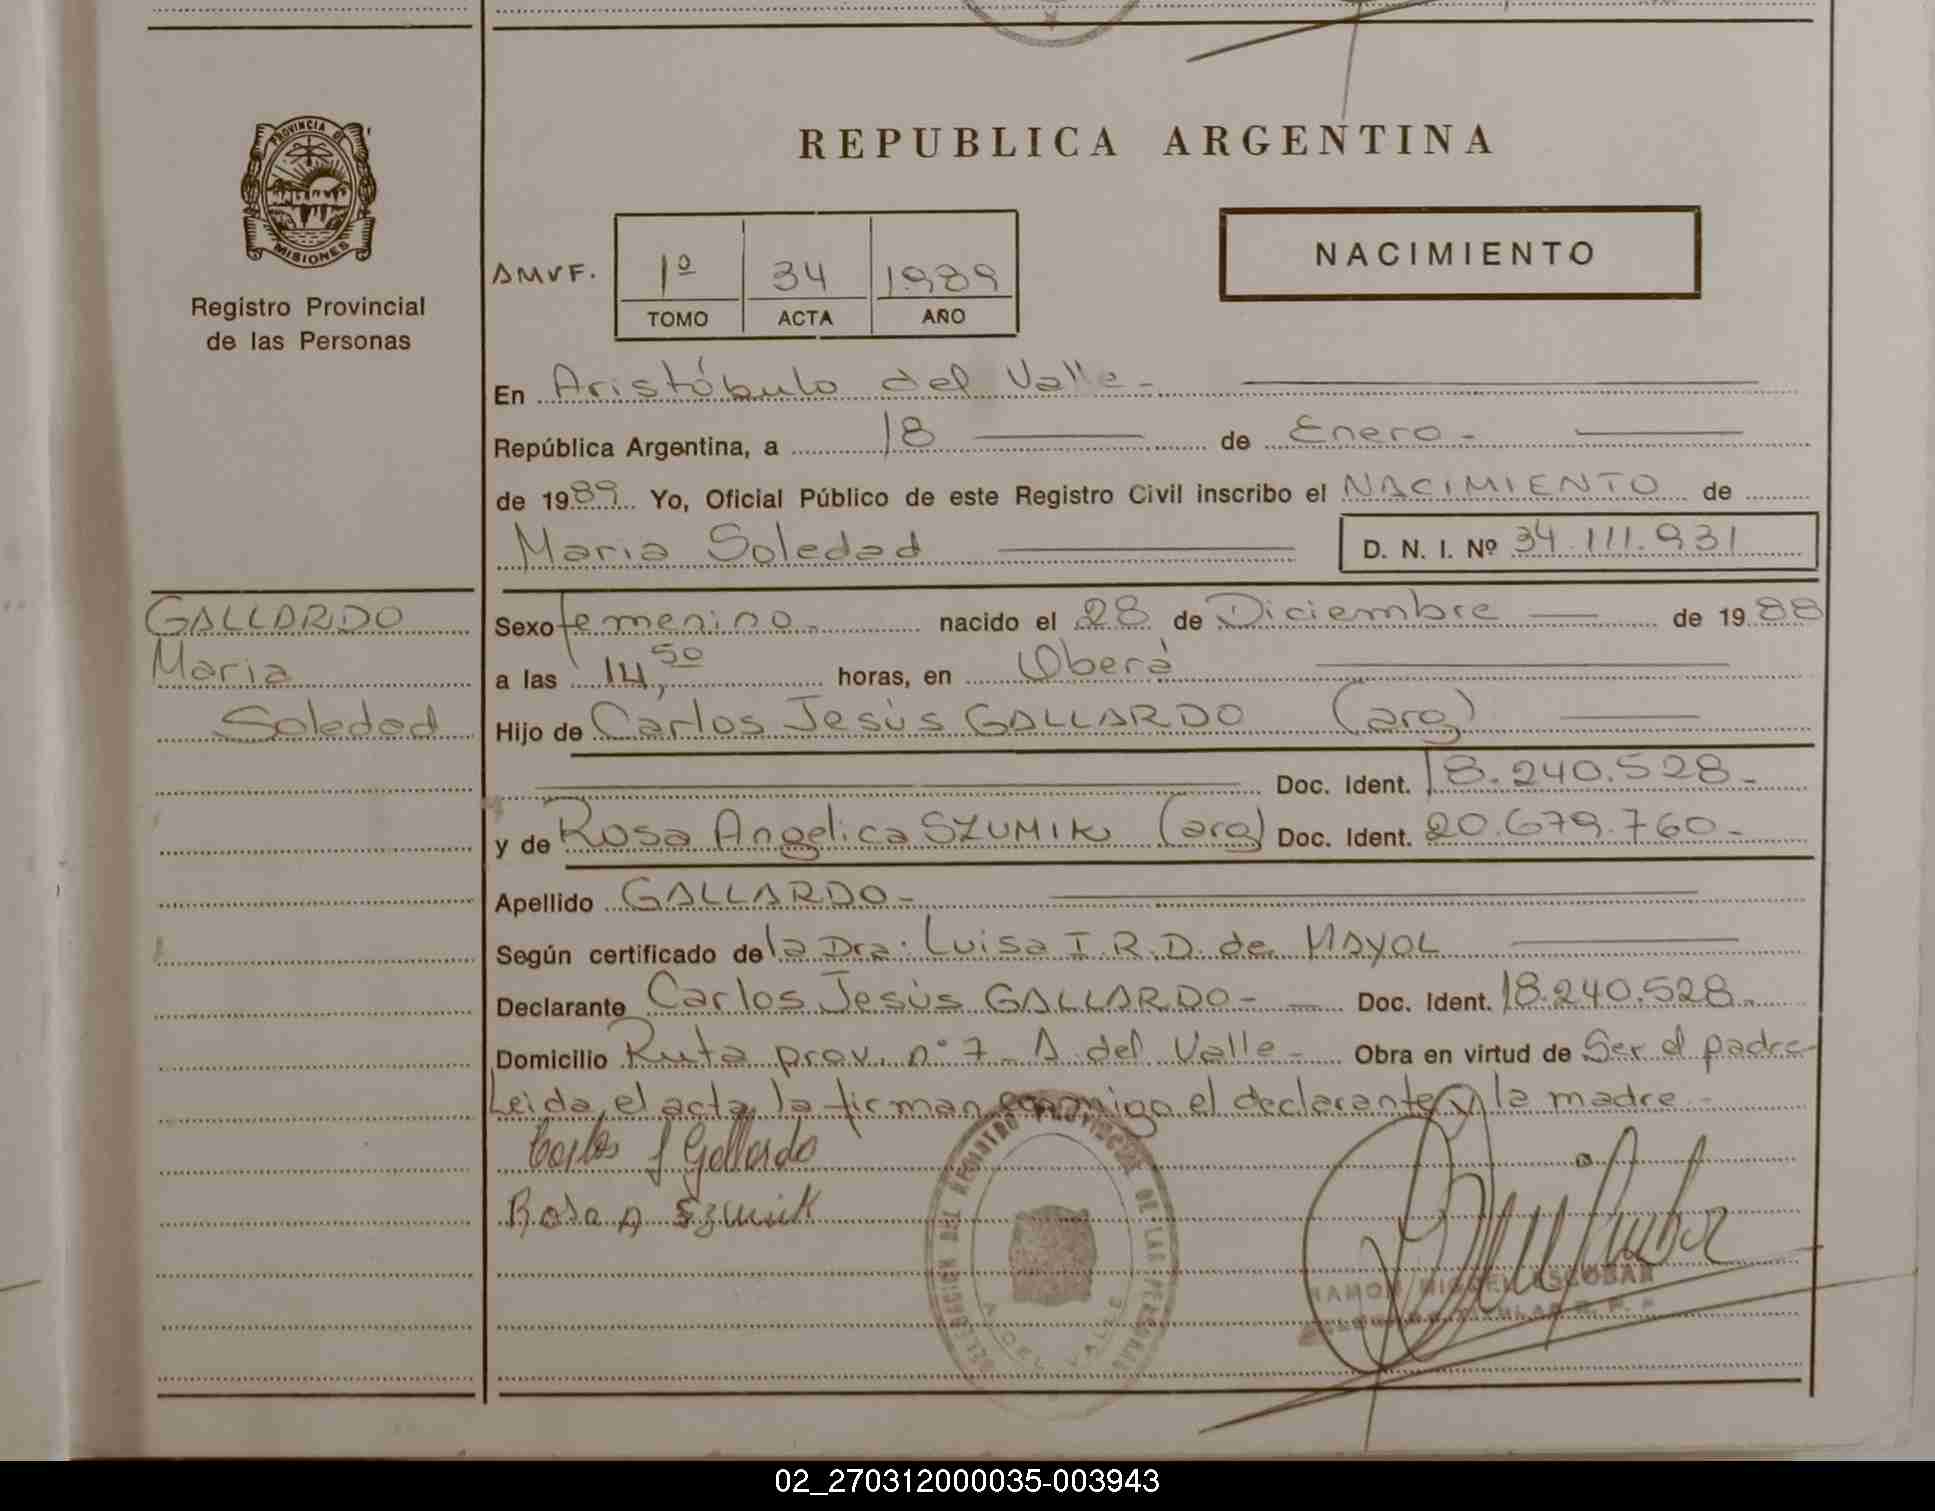 PROVINCIA DE
MISIONES
Registro Provincial
de las Personas
GALLARDO
Maria
Soledad
REPUBLICA ARGENTINA
NACIMIENTO
AMVF.
1º 34 1989
TOMO ACTA AÑO
En Aristóbulo del Valle -
República Argentina, a 18 de Enero -
de 1989. Yo, Oficial Público de este Registro Civil inscribo el NACIMIENTO de
Maria Soledad D. N. I. Nº 34.111.931
Sexo femenino. nacido el 28 de Diciembre de 1988
a las 14,50 horas, en Oberá
Hijo de Carlos Jesús GALLARDO (arg)
Doc. Ident. 18.240.528 -
y de Rosa Angelica SZUMIK (arg) Doc. Ident. 20.679.760 -
Apellido GALLARDO -
Según certificado de la Dra. Luisa I. R. D. de MAYOL
Declarante Carlos Jesús GALLARDO - Doc. Ident. 18.240.528 -
Domicilio Ruta prov. nº 7 - A. del Valle - Obra en virtud de Ser el padre -
Leida, el acta, la firman conmigo el declarante y la madre -
Carlos J Gallardo
Rosa A Szumik
DELEGACION DEL REGISTRO PROVINCIAL DE LAS PERSONAS
A. DEL VALLE
RAMON MIGUEL ESCOBAR
TITULAR R. P. P.
02_270312000035-003943